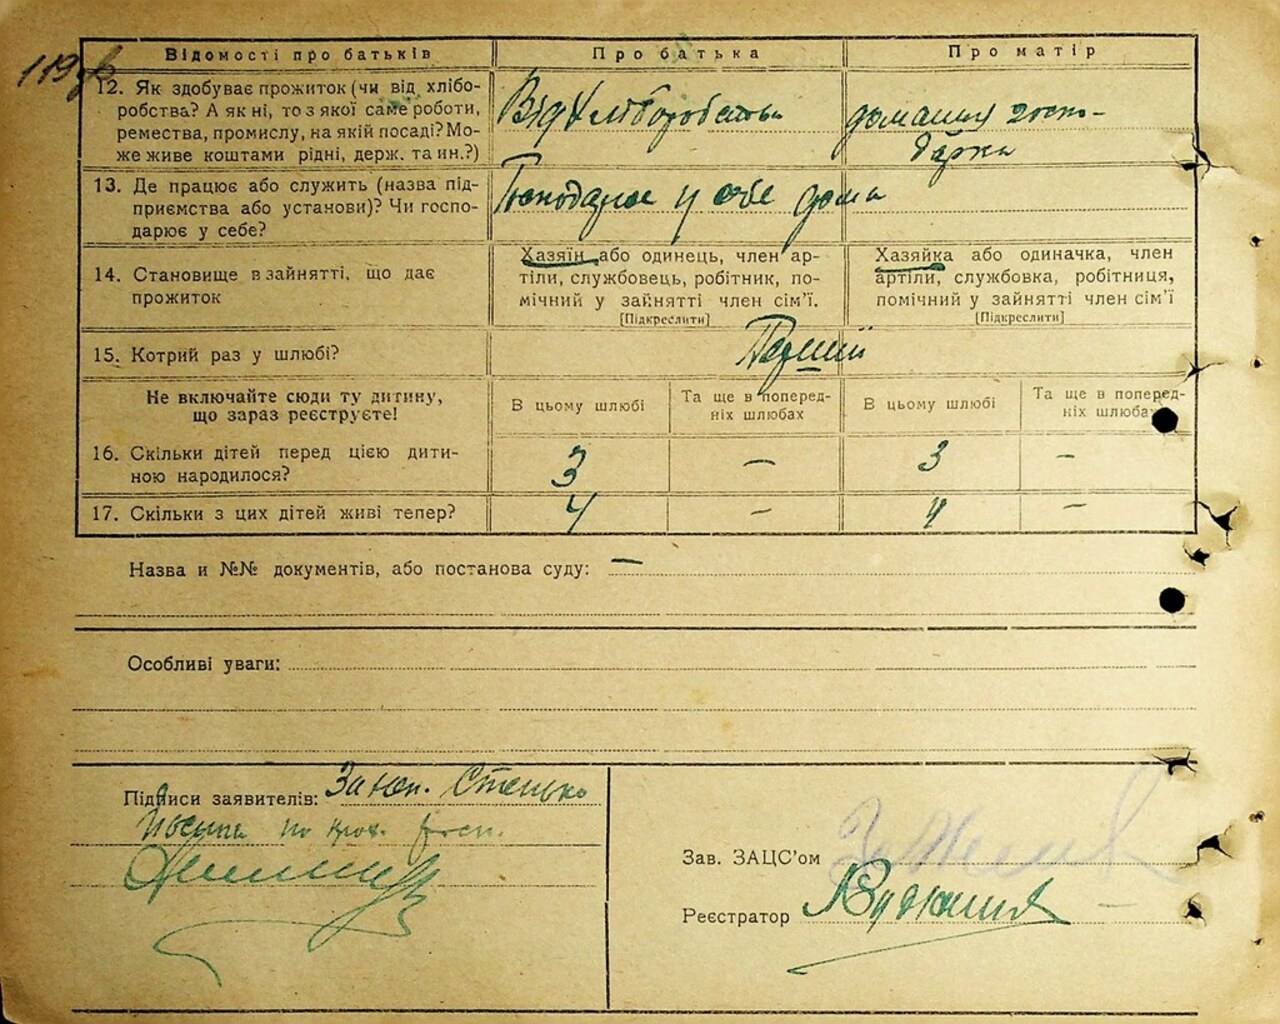 119зв
Відомості про батьків Про батька Про матір
12. Як здобуває прожиток (чи від хлібо-
робства? А як ні, то з якої саме роботи,
ремества, промислу, на якій посаді? Мо-
же живе коштами рідні, держ. та ин.?)
Від хліборобства
домашня госпо-
дарка
13. Де працює або служить (назва під-
приємства або установи)? Чи госпо-
дарює у себе?
Господарює у себе дома
14. Становище в зайнятті, що дає
прожиток
Хазяїн або одинець, член ар-
тіли, службовець, робітник, по-
мічний у зайнятті член сім'ї.
[Підкреслити]
Хазяйка або одиначка, член
артіли, службовка, робітниця,
помічний у зайнятті член сім'ї
[Підкреслити]
15. Котрий раз у шлюбі? Перший
Не включайте сюди ту дитину,
що зараз реєструєте!
В цьому шлюбі
Та ще в поперед-
ніх шлюбах
В цьому шлюбі
Та ще в поперед-
ніх шлюбах
16. Скільки дітей перед цією дити-
ною народилося?
3 — 3 —
17. Скільки з цих дітей живі тепер? 4 — 4 —
Назва и №№ документів, або постанова суду: —
Особливі уваги:
Підписи заявителів: За Стецько
по
Зав. ЗАЦС'ом
Реєстратор